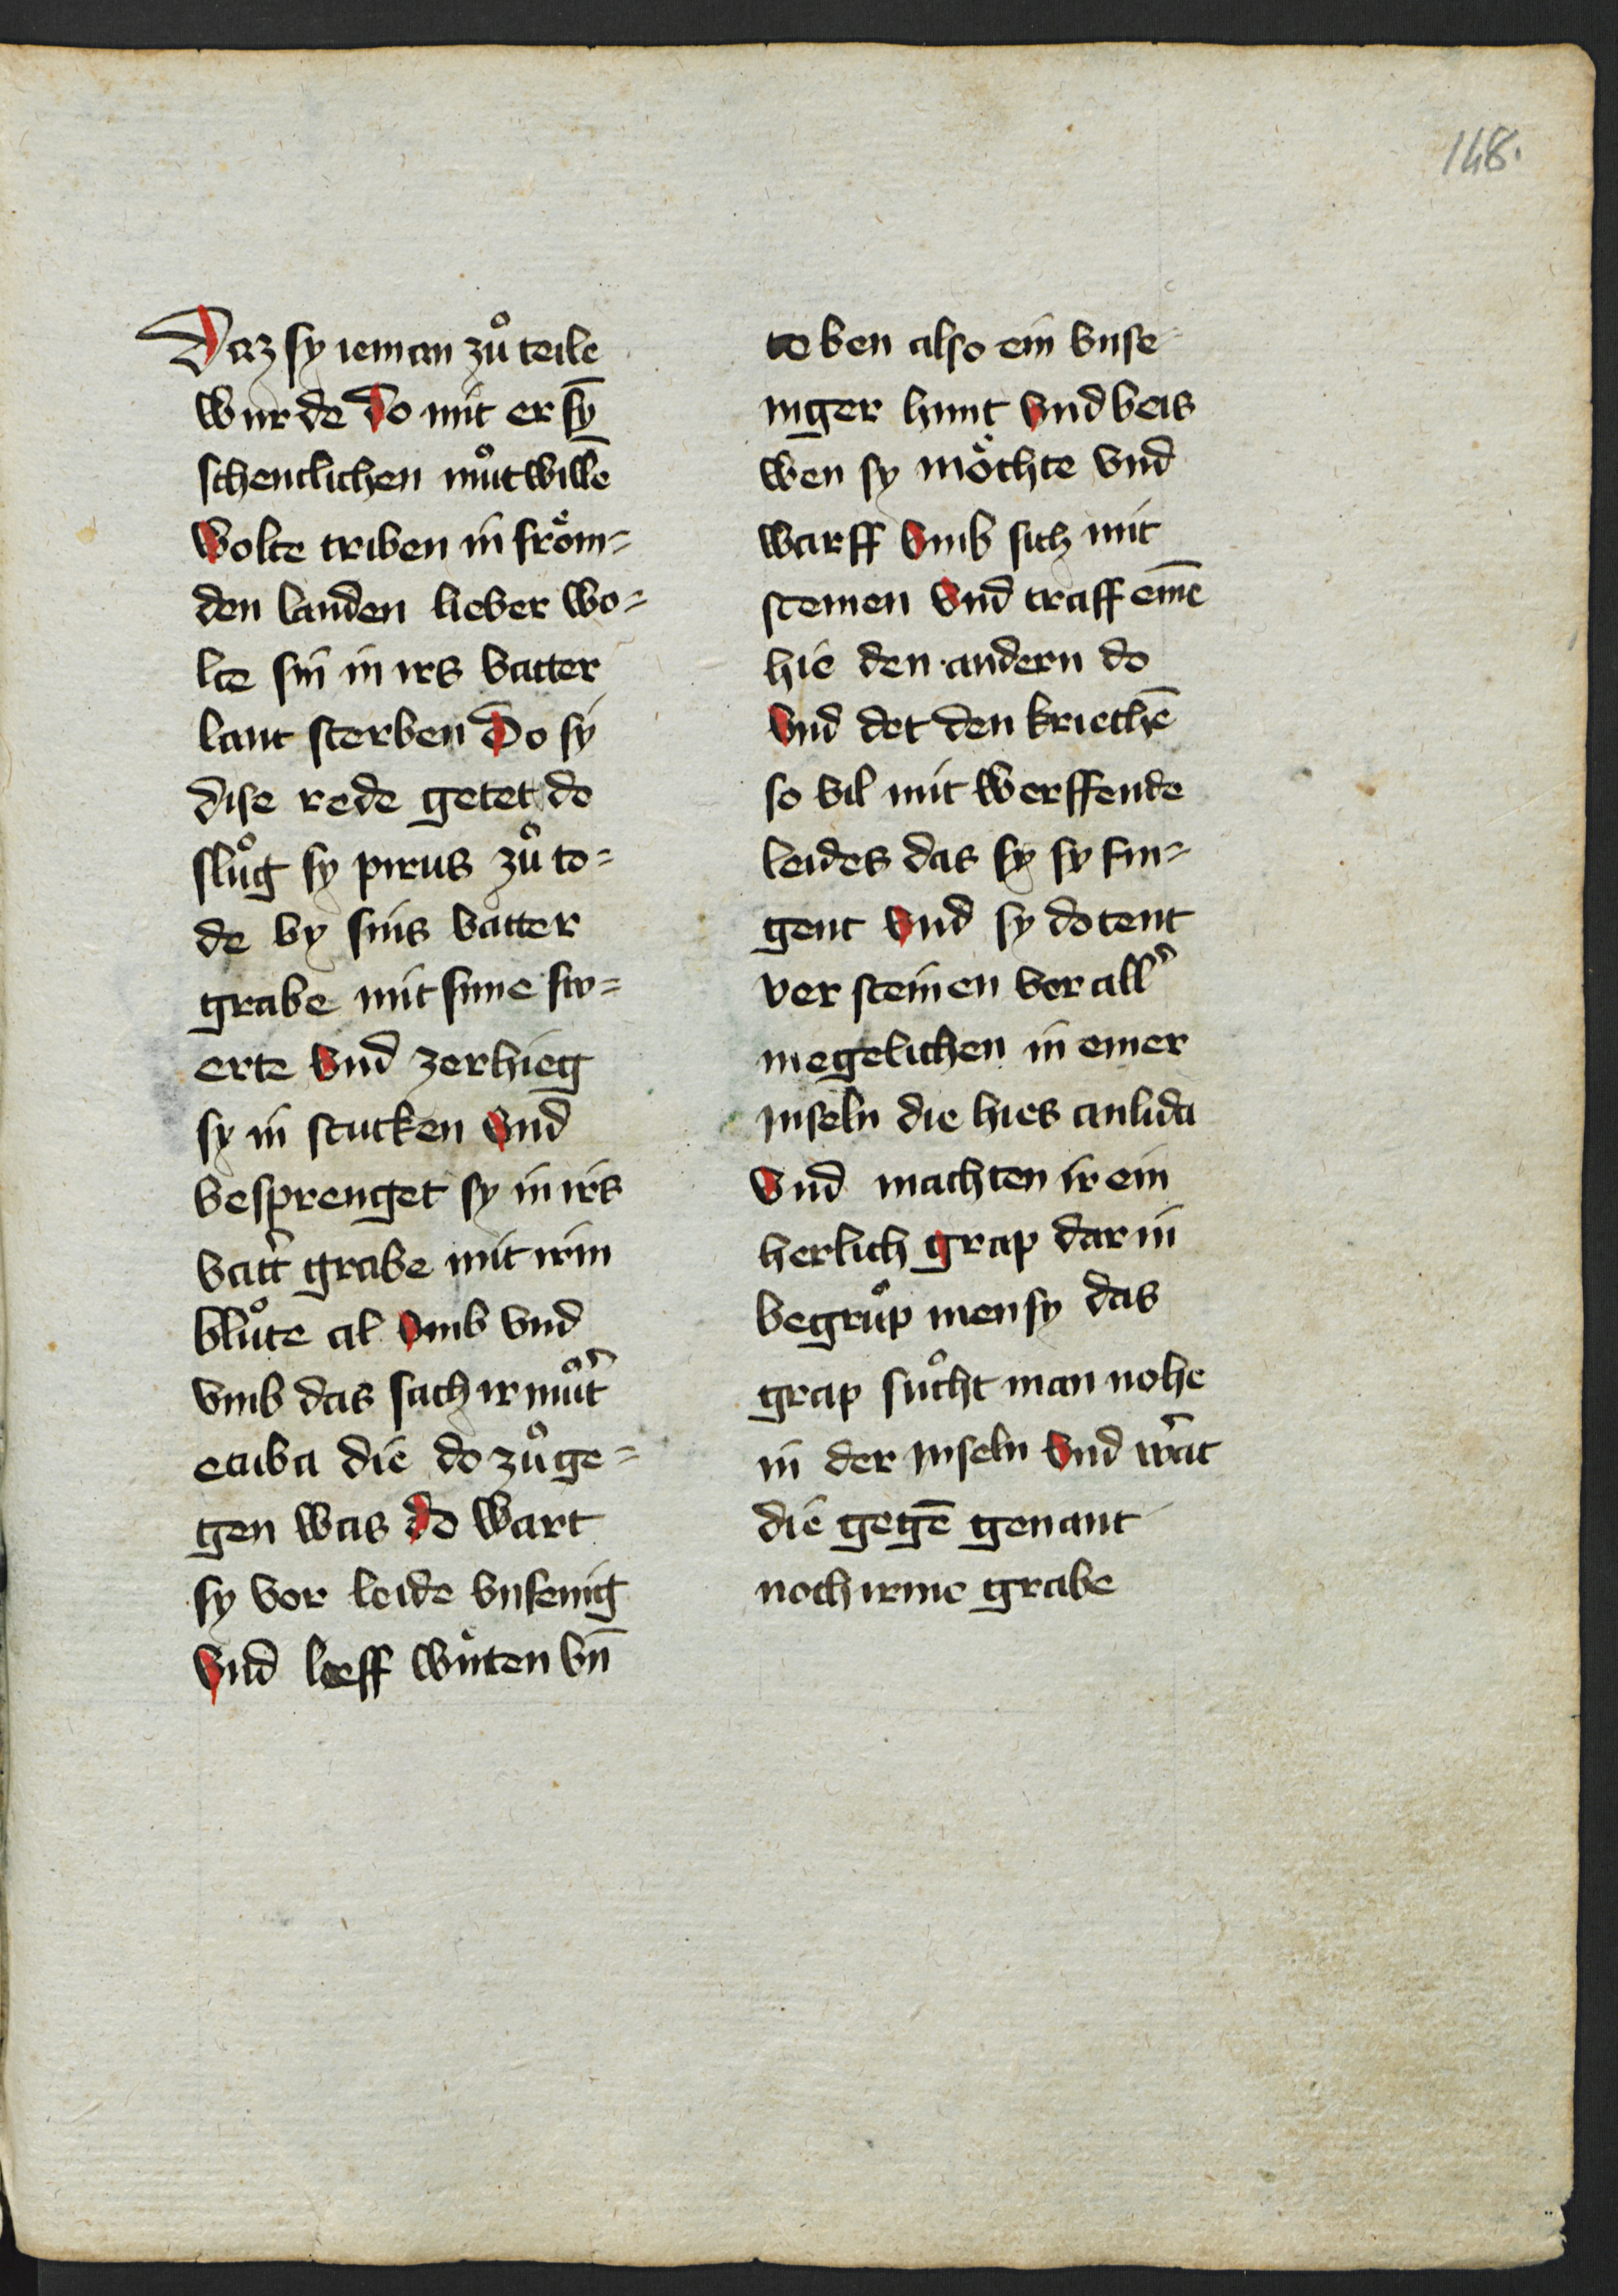 148.
Daz sy ieman zuͦ teile
wurde Do mit er sȳ
schentlichen muͦtwillē
Wolte triben in froͤm=
den landen lieber wo=
lte sin in irs vatter
lant sterben Do sy
dise rede getet do
sluͦg sy pirus zuͦ to=
de by sins vatter
grabe mit sime sw=
erte Vnd zerhieg
sy in stucken Vnd
besprenget sy in irs
vatt̾ grabe mit irm
bluͦte al Vmb vnd
vmb das sach ir muͦt̾
ecuba die do zuͦ ge=
gen was do wart
sy vor leide vnsenig
Vnd loeff wuͤten vn̄
toben also ein vnse
niger hunt Vnd beis
wen sy moͤchte vnd
warff Vmb sich mit
steinen Vnd traff einē
hie den andern do
Vnd det den kriechē
so vil mit werffende
leides das sy sy fin=
gent Vnd sy dotent
ver steinen vor all̾
megelichen in einer
jnseln die hies anlida
Vnd machten ir ein
herlich grap dar in
begruͦp men sy das
grap suͦcht man nohe
in der jnseln Vnd w̾rat
die gegē genant
noch irme grabe